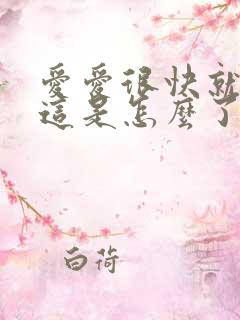 愛愛很快就
這是怎麼了
白荷